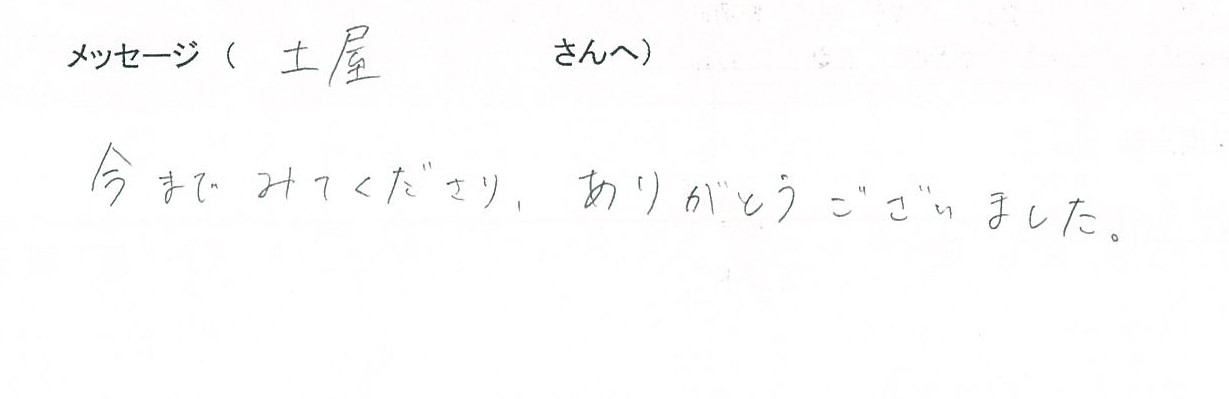 メッセージ（ 土屋 さんへ）
今までみてくださり、ありがとうございました。